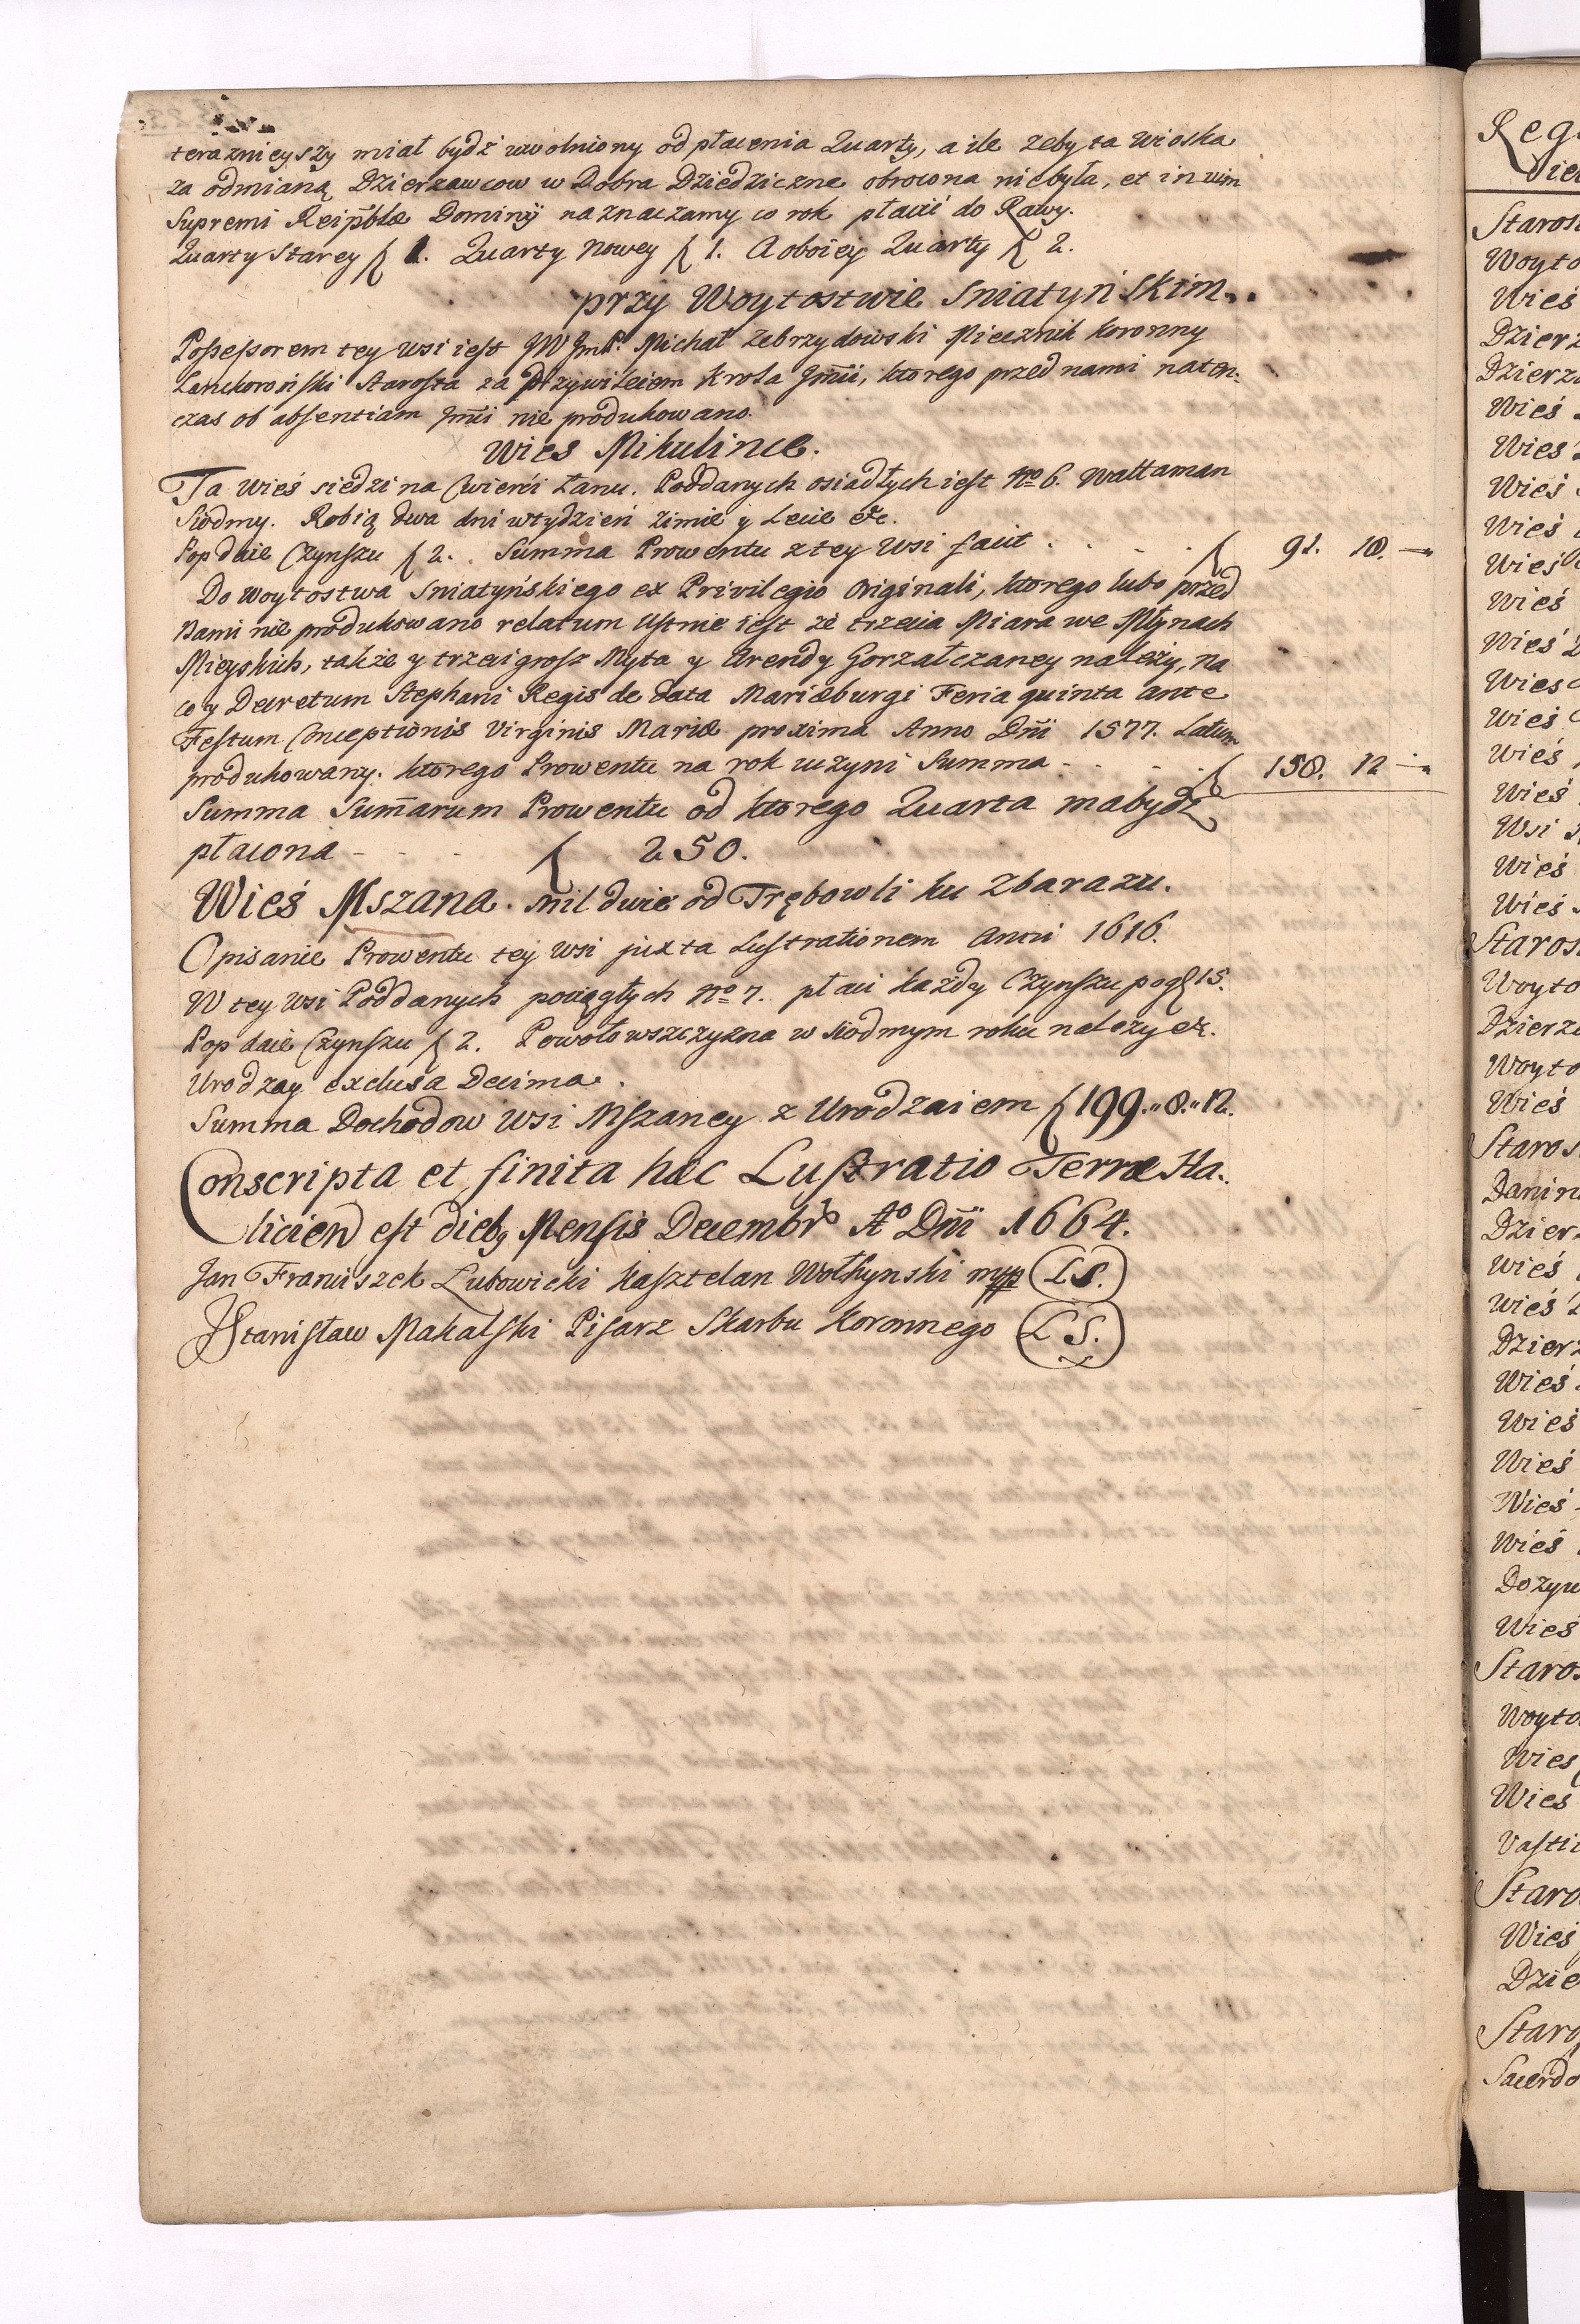 terazniejszy miał bydź uwolniony od płacenia Quarty, a ile zeby ta wioska
za odmianą Dzierzawcow w Dobra Dziedziczne obrocona niebyła, et in vim
Supremi Reipblæ Dominÿ naznaczamy co rok płacić do Rawy.
Quarty Starey f 1. Quarty Nowey f 1. A oboiey Quarty f 2.
przy Woytostwie Sniatyńskim.
Possessorem tey wsi iest JW JmP. Michał Zebrzydowski Miecznik Koronny
Lanckoroński Starosta za Przywileiem Krola Jmci, ktorego przed nami naten-
czas ob absentiam Jmci nie produkowano.
Wies Mikulince.
Ta wieś siedzi na Cwierci Łanu. Poddanych osiadłych iest No 6. Wattaman
Siodmy. Robią dwa dni w tydzień zimie y Lecie etc.
Pop daie Czynszu f 2. Summa Prowentu z tey Wsi facit . . . . f 91. 18. —
Do Woytostwa Sniatyńskiego ex Privilegio Originali, ktorego lubo przed
Nami nie produkowano relatum Ustnie iest że trzecia Miara we Młynach
Mieyskich, także y trzeci grosz Myta y Arendy Gorzałczaney należy, na
co y Decretum Stephani Regis de data Mariæburgi Feria quinta ante
Festum Conceptionis Virginis Mariæ proxima Anno Dñi 1577. Latum
produkowany. ktorego Prowentu na rok uczyni Summa - . . . f 158. 12 —
Summa Sum̃arum Prowentu od ktorego Quarta ma bydź
płacona - - - - f 250.
Wieś Mszana. mil dwie od Trębowli ku Zbarazu.
Opisanie Prowentu tej wsi juxta Lustrationem Anni 1616.
W tey wsi Poddanych pociągłych No 7. płaci każdy Czynszu po g 15.
Pop daie Czynszu f 2. Powołowszczyzna w siodmym roku należy etc.
Urodzay exclusa Decima.
Summa Dochodow Wsi Mszaney z Urodzaiem f 199.„8.„12.
Conscripta et finita hæc Lustratio Terræ Ha-
licien est dieb9 Mensis Decembris Ao Dñi 1664.
Jan Franciszek Lubowicki Kasztelan Wołhynski mpp LS.
Stanisław Makalski Pisarz Skarbu Koronnego LS.